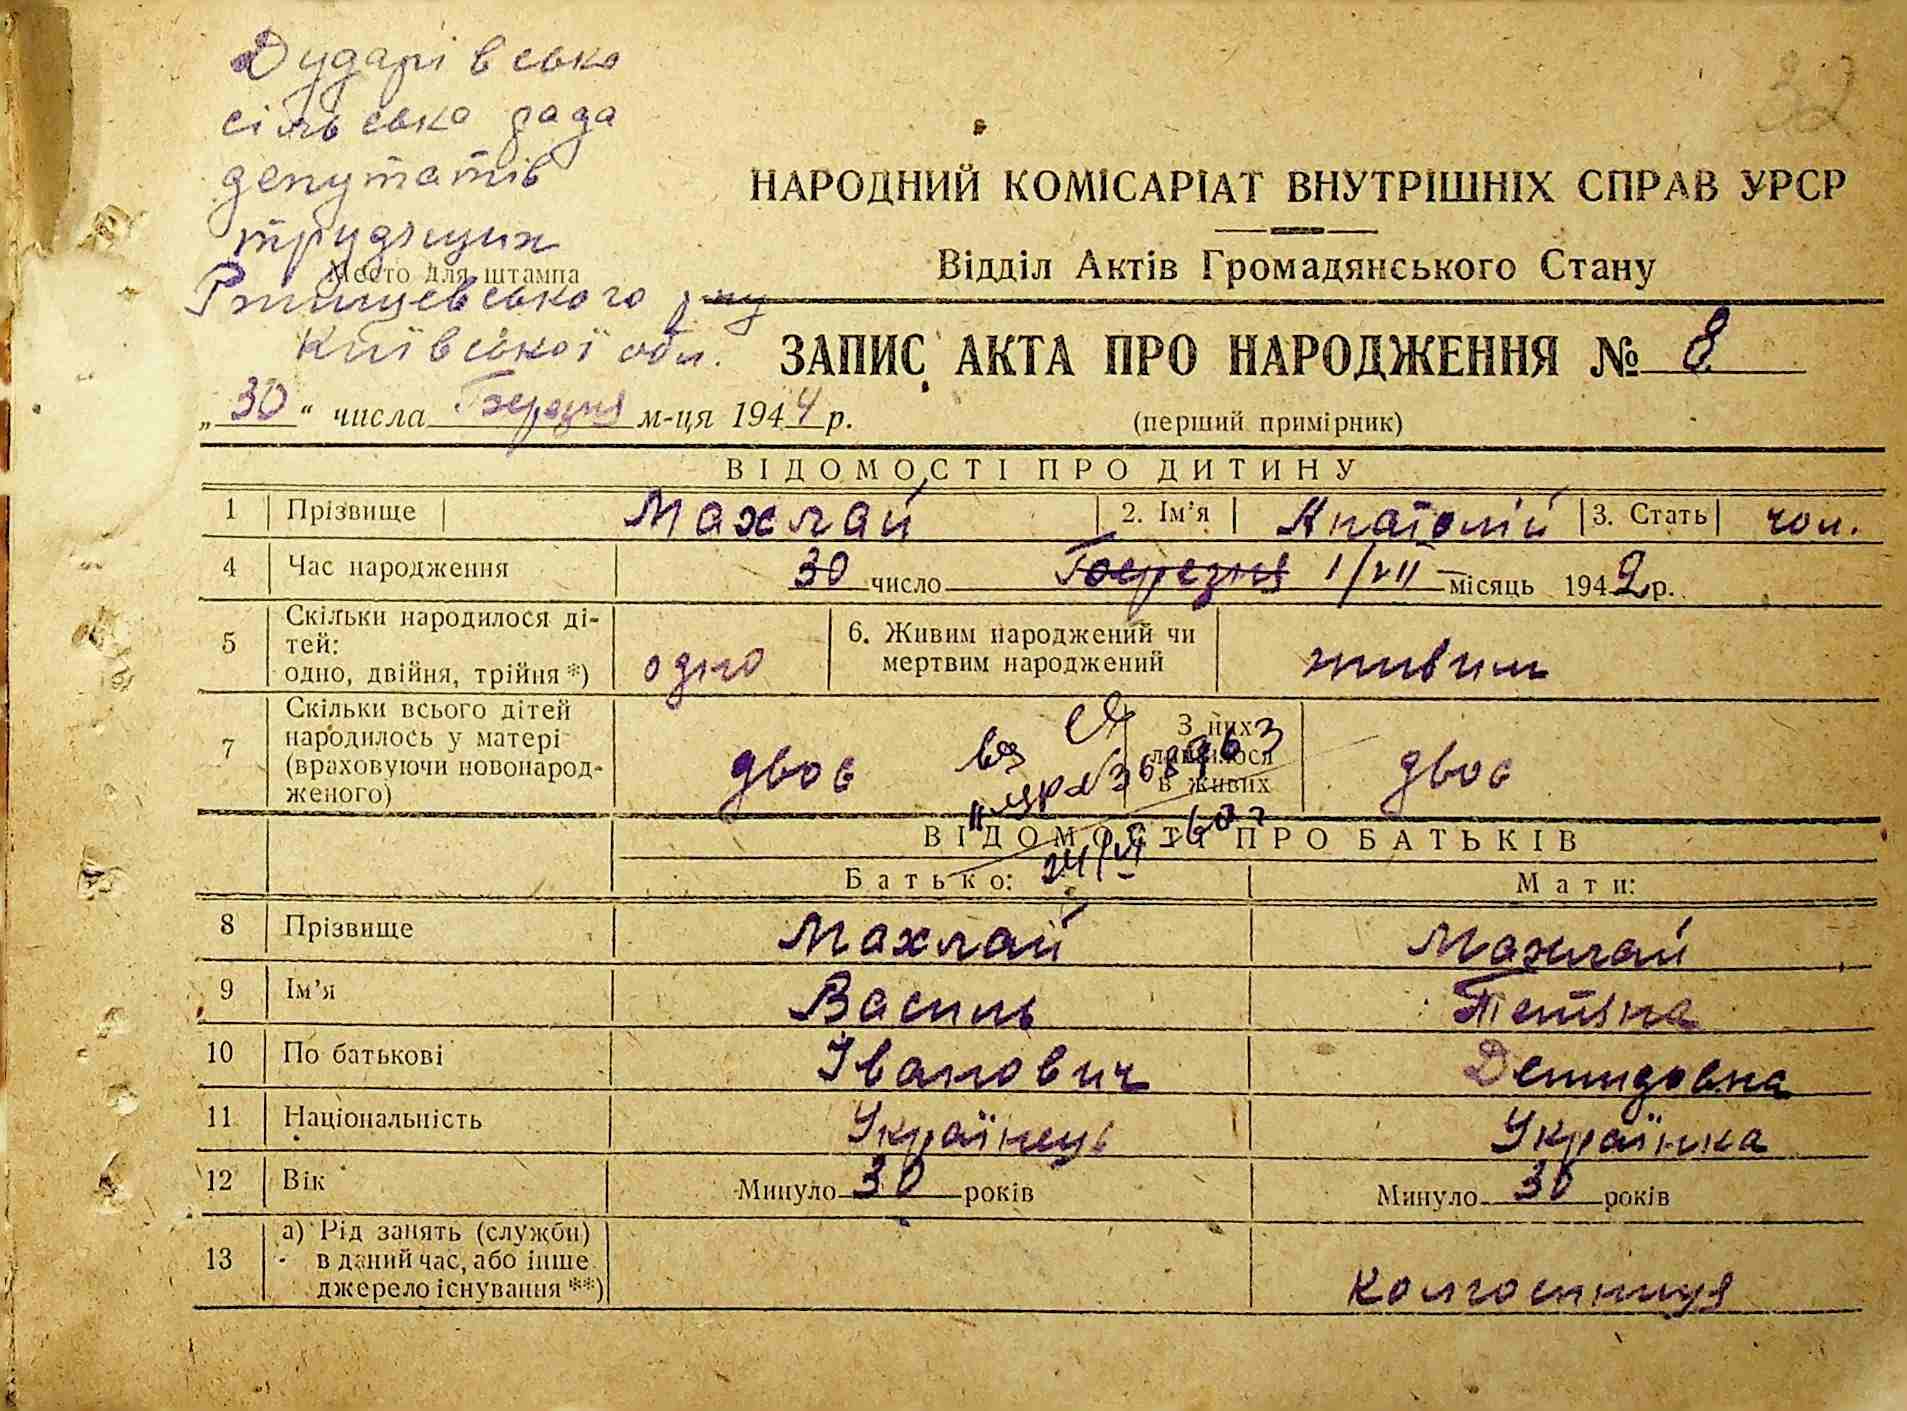 32
Дударівська
сільська рада
депутатів
трудящих
Место для штампа
Ржищевського р-ну
Київської обл.
НАРОДНИЙ КОМІСАРІАТ ВНУТРІШНІХ СПРАВ УРСР
Відділ Актів Громадянського Стану
ЗАПИС АКТА ПРО НАРОДЖЕННЯ № 8
„30“ числа Березня м-ця 1944 р.
(перший примірник)
ВІДОМОСТІ ПРО ДИТИНУ
1 Прізвище Махлай 2. Ім'я Анатолій 3. Стать чол.
4 Час народження 30 число Березня 1/VII місяць 1942 р.
5 Скільки народилося ді-
тей:
одно, двійня, трійня *) одно 6. Живим народжений чи
мертвим народжений живим
7 Скільки всього дітей
народилось у матері
(враховуючи новонарод-
женого) двоє З них
лишилося
в живих двоє
ВІДОМОСТІ ПРО БАТЬКІВ
Батько: Мати:
8 Прізвище Махлай Махлай
9 Ім'я Василь Тетяна
10 По батькові Іванович Демидовна
11 Національність Українець Українка
12 Вік Минуло 30 років Минуло 30 років
13 а) Рід занять (служби)
в даний час, або інше
джерело існування **) колгоспниця